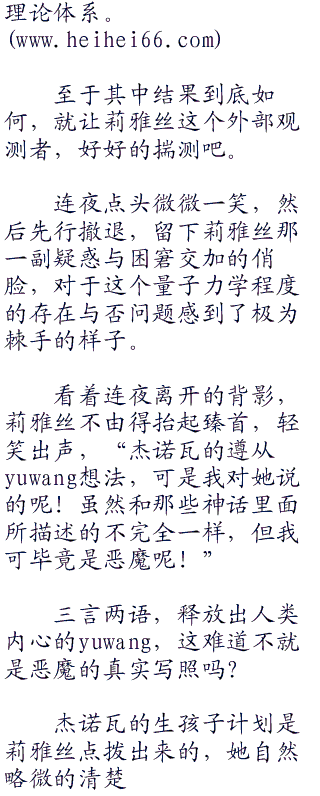 理论体系。
(www.heihei66.com)
至于其中结果到底如
何，就让莉雅丝这个外部观
测者，好好的揣测吧。
连夜点头微微一笑，然
后先行撤退，留下莉雅丝那
一副疑惑与困窘交加的俏
脸，对于这个量子力学程度
的存在与否问题感到了极为
棘手的样子。
看着连夜离开的背影，
莉雅丝不由得抬起臻首，轻
笑出声，“杰诺瓦的遵从
yuwang想法，可是我对她说
的呢！虽然和那些神话里面
所描述的不完全一样，但我
可毕竟是恶魔呢！”
三言两语，释放出人类
内心的yuwang，这难道不就
是恶魔的真实写照吗？
杰诺瓦的生孩子计划是
莉雅丝点拨出来的，她自然
略微的清楚